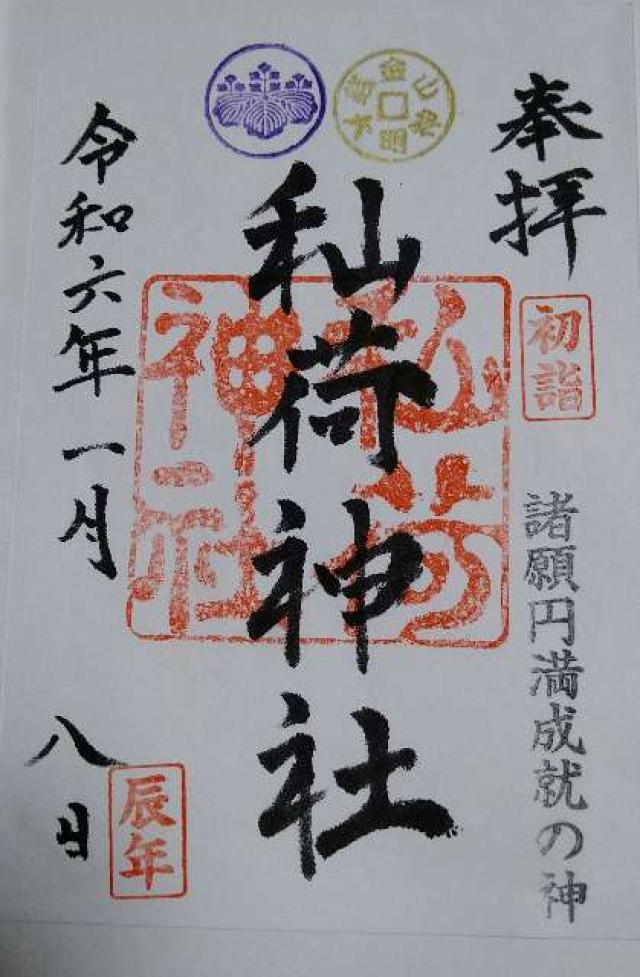 奉拝
初詣
諸願円満成就の神
秈荷神社
秈荷
神社
令和六年一月
八日
辰年